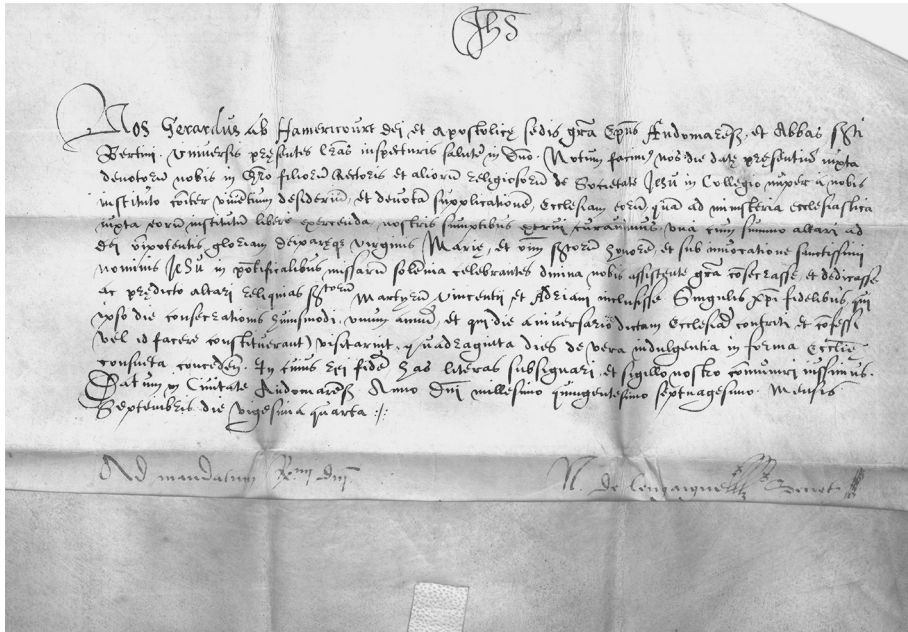 Jhs
Nos Gerardus ab Hamericourt dei et apostolicę sedis grã Ep̃us Audomareñ. et Abbas s̃cti
Bertini. Universis pręsentes l̃ras inspecturis salutẽ in Dño. Notum facim9 nos die datę pręsentiũ iuxta
devotorũ nobis in Chrõ filiorũ Rectoris et aliorũ religiosorũ de Societate Jesu in Collegio nuper a nobis
instituto c̃oiter viventium desideriũ, et devotã supplicationẽ, Ecclesiam eorũ quã ad ministeria ecclesiastica
iuxta eorũ institutũ liberè exercenda, nostris sumptibus extrui curavimus, una cum summo altari ad
dei õipotentis, gloriam deiparęq; virginis Marię, et õm s̃ctorũ honorẽ, et sub invocatione sanctissimi
nominis Jesu in põtificalibus missarũ solẽnia celebrantes divina nobis assistente grã cõsecrasse, et dedicasse
ac prędicto altari reliquias s̃ctorũ Martyrũ Vincentii et Adriani inclusisse. Singulis xp̃i fidelibus, qui
ipso die consecrationis huiusmodi, unum annũ, et qui die aniversario dictam Ecclesiã contriti, et cõfessi
vel id facere constituerant, visitarint, quadraginta dies de vera indulgentia in forma Ecclię
consueta conceden. In cuius rei fidẽ has literas subsignari, et sigillo nostro com̃uniri iussimus.
Datum in Civitate Audomareñ. Anno Dñi millesimo quingentesimo septuagesimo. Mensis
Septembris die vigesima quarta :/:
Ad mandatum R.mi dñi
N. de Secret.